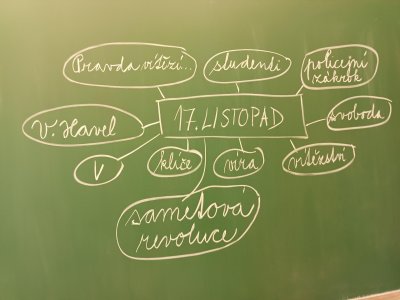 Pravda vítězí...
studenti
policejní
zákrok
17. LISTOPAD
V. Havel
svoboda
V
klíče
víra
vítězství
sametová
revoluce